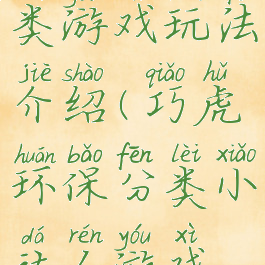 类游戏玩法
jiè shào qiǎo hǔ
介绍(巧虎
huán bǎo fēn lèi xiǎo
环保分类小
dá rén yóu xì
达人游戏